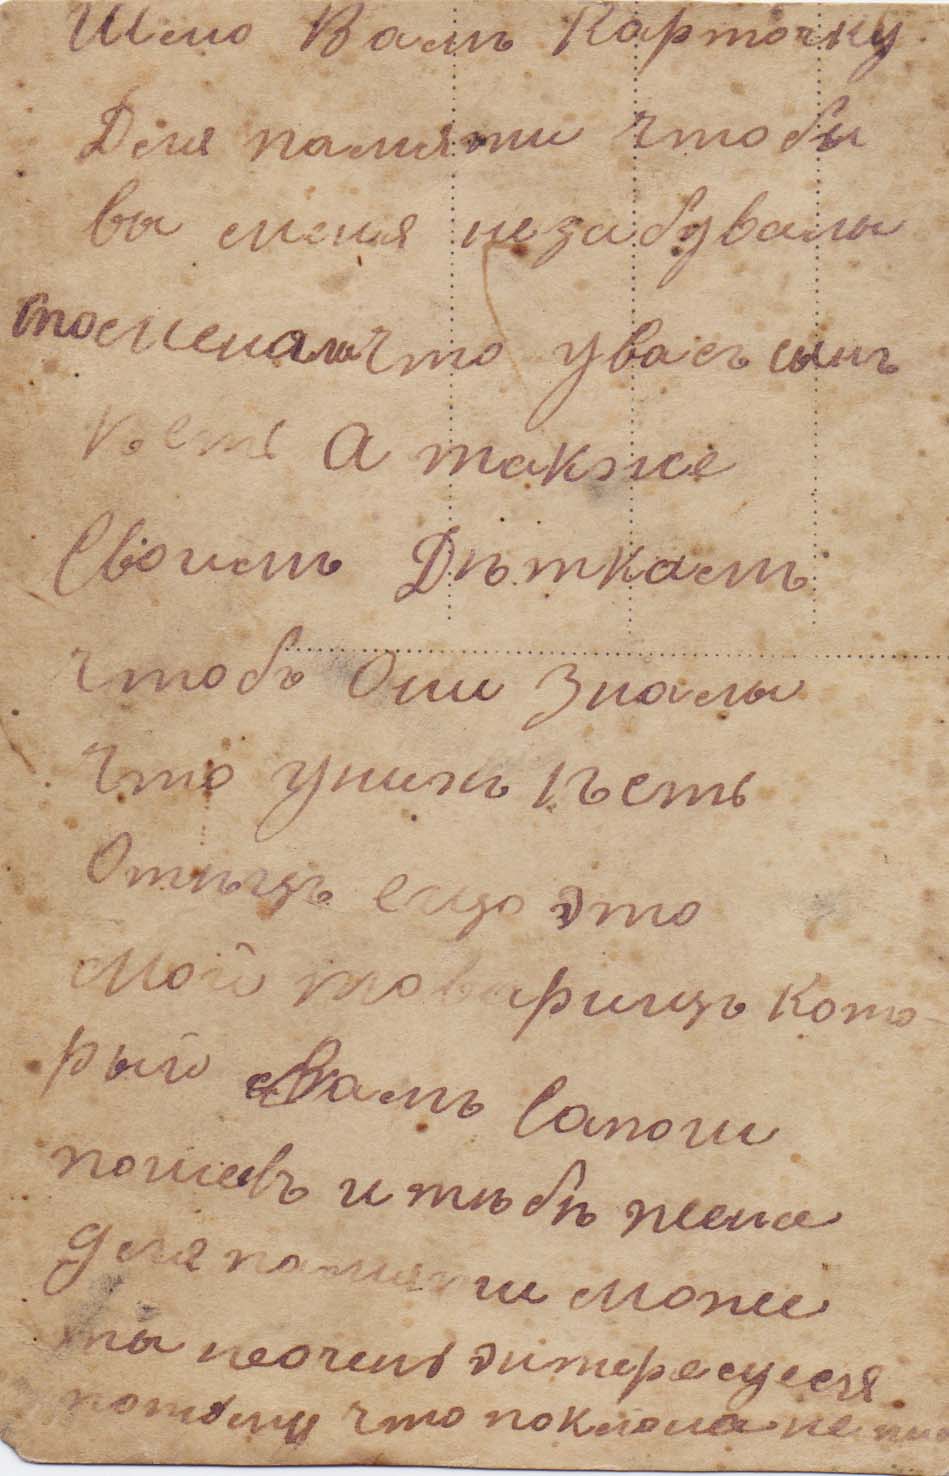 Шлю Вамъ Карточку.
Для памяти чтобы
вы меня незабувалы
што увасъ сынъ
ѣсть А также
Своимъ Дѣткамъ
чтобъ Они Зналы
что унихъ ѣсть
Отѣцъ ещо это
мой товарищъ кото-
рый Вамъ Сапоги
пошевъ и тѣбѣ жена
для памяти може
ты неочень эитересуеся
потому что поклона не